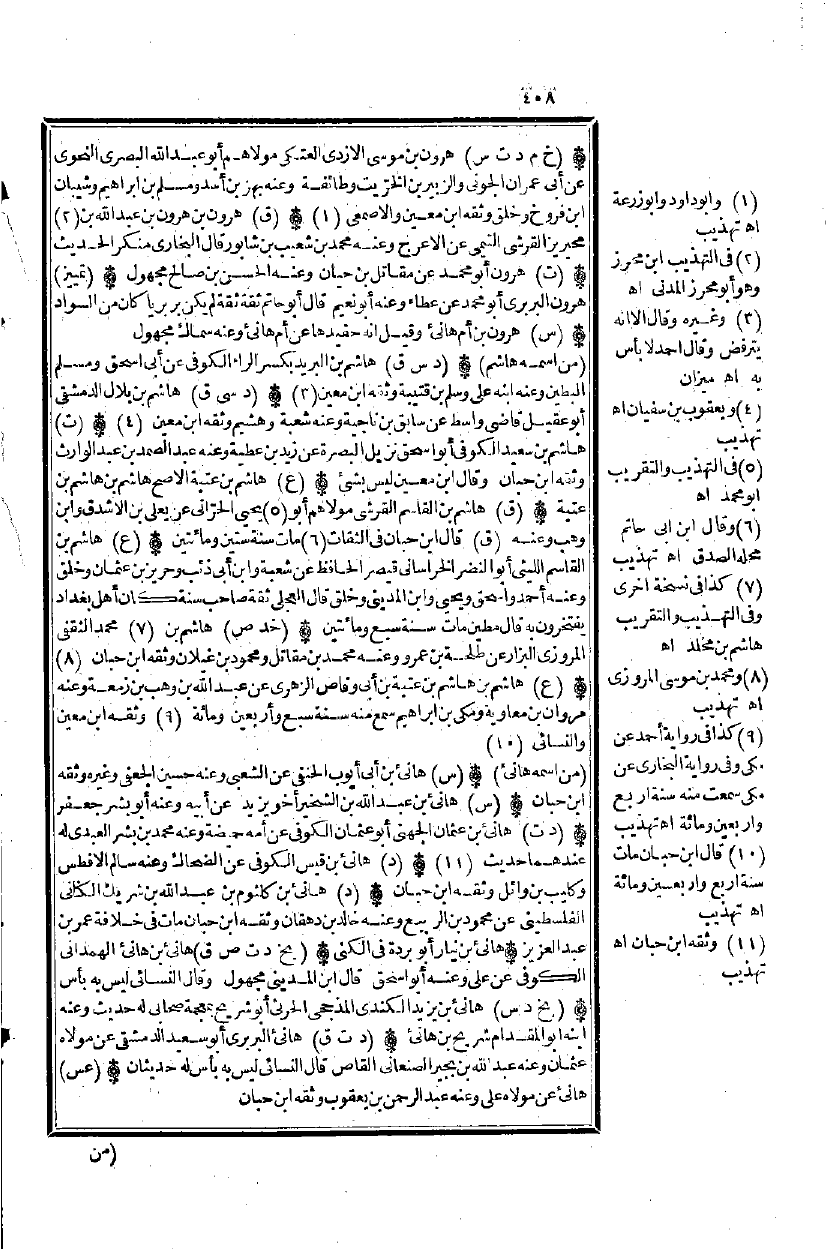 ٤٠٨
۞ (خ م د ت س) هرون بن موسى الازدى العتكى مولاهم أبو عبد الله البصرى النحوى
عن أبى عمران الجونى والزبير بن الخريت وطائفة وعنه بهز بن أسد ومسلم بن ابراهيم وشيبان
ابن فروخ وخلق وثقه ابن معين والاصمعى (١) ۞ (ق) هرون بن هرون بن عبد الله بن (٢)
محير بن القرشى التيمى عن الاعرج وعنه محمد بن شعيب بن شابور قال البخارى منكر الحديث
۞ (ت) هرون أبو محمد عن مقاتل بن حبان وعنه الحسن بن صالح مجهول ۞ (تمييز)
هرون البربرى أبو محمد عن عطاء وعنه أبو نعيم قال أبو حاتم ثقة ثقة لم يكن بربريا كان من السواد
۞ (س) هرون بن أم هانئ وقيل انه حفيدها عن أم هانئ وعنه سماك مجهول
(من اسمه هاشم) ۞ (د س ق) هاشم بن البريد بكسر الراء الكوفى عن أبى اسحق ومسلم
البطين وعنه ابنه على وسلم بن قتيبة وثقه ابن معين (٣) ۞ (د سى ق) هاشم بن بلال الدمشقى
أبو عقيل قاضى واسط عن سابق بن ناجية وعنه شعبة وهشيم وثقه ابن معين (٤) ۞ (ت)
هاشم بن سعيد الكوفى أبو اسحق نزيل البصرة عن زيد بن عطية وعنه عبد الصمد بن عبد الوارث
وثقه ابن حبان وقال ابن معين ليس بشئ ۞ (ع) هاشم بن عتبة الاصح هاشم بن هاشم بن
عتبة ۞ (ق) هاشم بن القاسم القرشى مولاهم أبو (٥) يحيى الحرانى عن يعلى بن الاشدق وابن
وهب وعنه (ق) قال ابن حبان فى الثقات (٦) مات سنة ستين ومائتين ۞ (ع) هاشم بن
القاسم الليثى أبو النضر الخراسانى قيصر الحافظ عن شعبة وابن أبى ذئب وحريز بن عثمان وخلق
وعنه أحمد واسحق ويحيى وابن المدينى وخلق قال العجلى ثقة صاحب سنة كان أهل بغداد
يفتخرون به قال مطين مات سنة سبع ومائتين ۞ (خد ص) هاشم بن (٧) محمد الثقفى
المروزى البزار عن طلحة بن عمرو وعنه محمد بن مقاتل ومحمود بن غيلان وثقه ابن حبان (٨)
۞ (ع) هاشم بن هاشم بن عتبة بن أبى وقاص الزهرى عن عبد الله بن وهب بن زمعة وعنه
مروان بن معاوية ومكى بن ابراهيم سمع منه سنة سبع وأربعين ومائة (٩) وثقه ابن معين
والنسائى (١٠)
(من اسمه هانئ) ۞ (س) هانئ بن أبى أيوب الحنفى عن الشعبى وعنه حسين الجعفى وغيره وثقه
ابن حبان ۞ (س) هانئ بن عبد الله بن الشخير أخو يزيد عن أبيه وعنه أبو بشر جعفر
۞ (د ت) هانئ بن عثمان الجهنى أبو عثمان الكوفى عن أمه حميضة وعنه محمد بن بشر العبدى له
عندهما حديث (١١) ۞ (د) هانئ بن قيس الكوفى عن الضحاك وعنه سالم الافطس
وكليب بن وائل وثقه ابن حبان ۞ (د) هانئ بن كلثوم بن عبد الله بن شريك الكنانى
الفلسطينى عن محمود بن الربيع وعنه خالد بن دهقان وثقه ابن حبان مات فى خلافة عمر بن
عبد العزيز ۞ هانئ بن نيار أبو بردة فى الكنى ۞ (بخ د ت ص ق) هانئ بن هانئ الهمدانى
الكوفى عن على وعنه أبو اسحق قال ابن المدينى مجهول وقال النسائى ليس به بأس
۞ (بخ د س) هانئ بن يزيد الكندى المذحجى الحرثى أبو شريح بمعجمة صحابى له حديث وعنه
ابنه ابو المقدام شريح بن هانئ ۞ (د ت ق) هانئ البربرى أبو سعيد الدمشقى عن مولاه
عثمان وعنه عبد الله بن بحير الصنعانى القاص قال النسائى ليس به بأس له حديثان ۞ (عس)
هانئ عن مولاه على وعنه عبد الرحمن بن يعقوب وثقه ابن حبان
(من
(١) وابو داود وابو زرعة
اه تهذيب
(٢) فى التهذيب ابن محرز
وهو أبو محرز المدنى اه
(٣) وغيره وقال الا انه
يترفض وقال احمد لا بأس
به اه ميزان
(٤) ويعقوب بن سفيان اه
تهذيب
(٥) فى التهذيب والتقريب
ابو محمد اه
(٦) وقال ابن ابى حاتم
محله الصدق اه تهذيب
(٧) كذا فى نسخة اخرى
وفى التهذيب والتقريب
هاشم بن مخلد اه
(٨) ومحمد بن موسى المروزى
اه تهذيب
(٩) كذا فى رواية أحمد عن
مكى وفى رواية البخارى عن
مكى سمعت منه سنة اربع
واربعين ومائة اه تهذيب
(١٠) قال ابن حبان مات
سنة اربع واربعين ومائة
اه تهذيب
(١١) وثقه ابن حبان اه
تهذيب